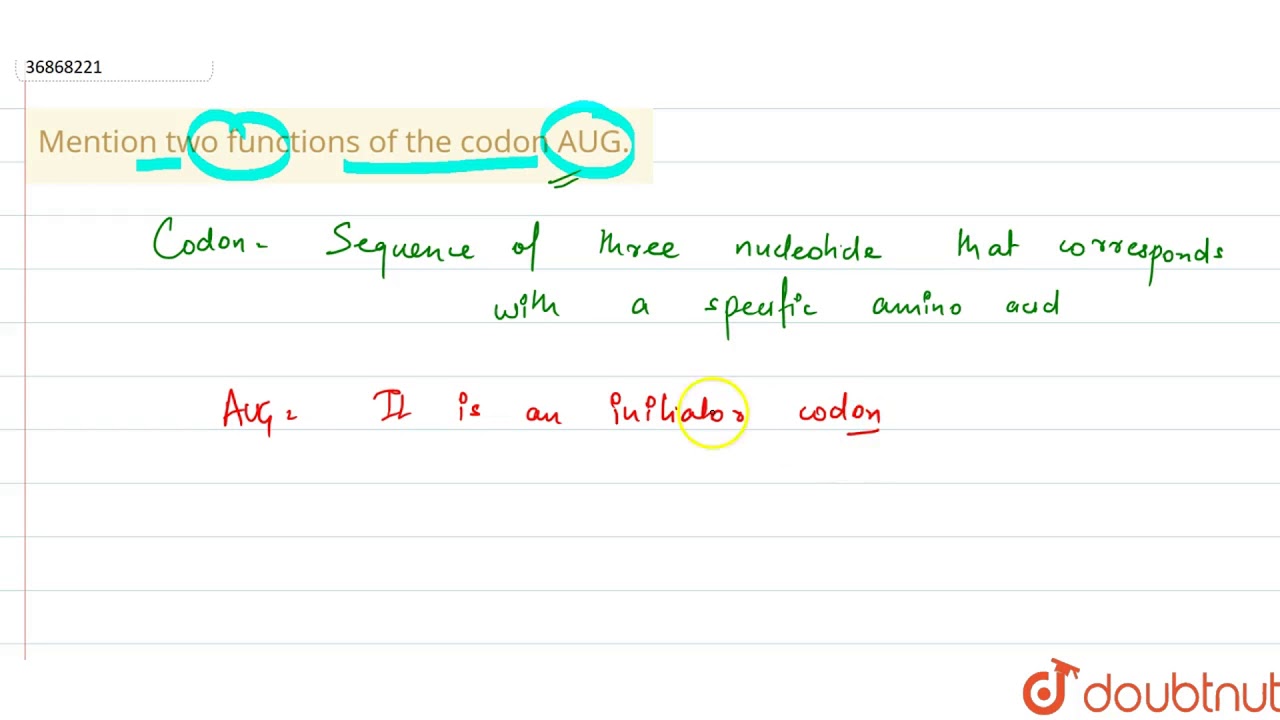 36868221
Mention two functions of the codon AUG.
Codon - Sequence of three nucleotide that corresponds
with a specific amino acid
AUG = It is an initiator codon
doubtnut